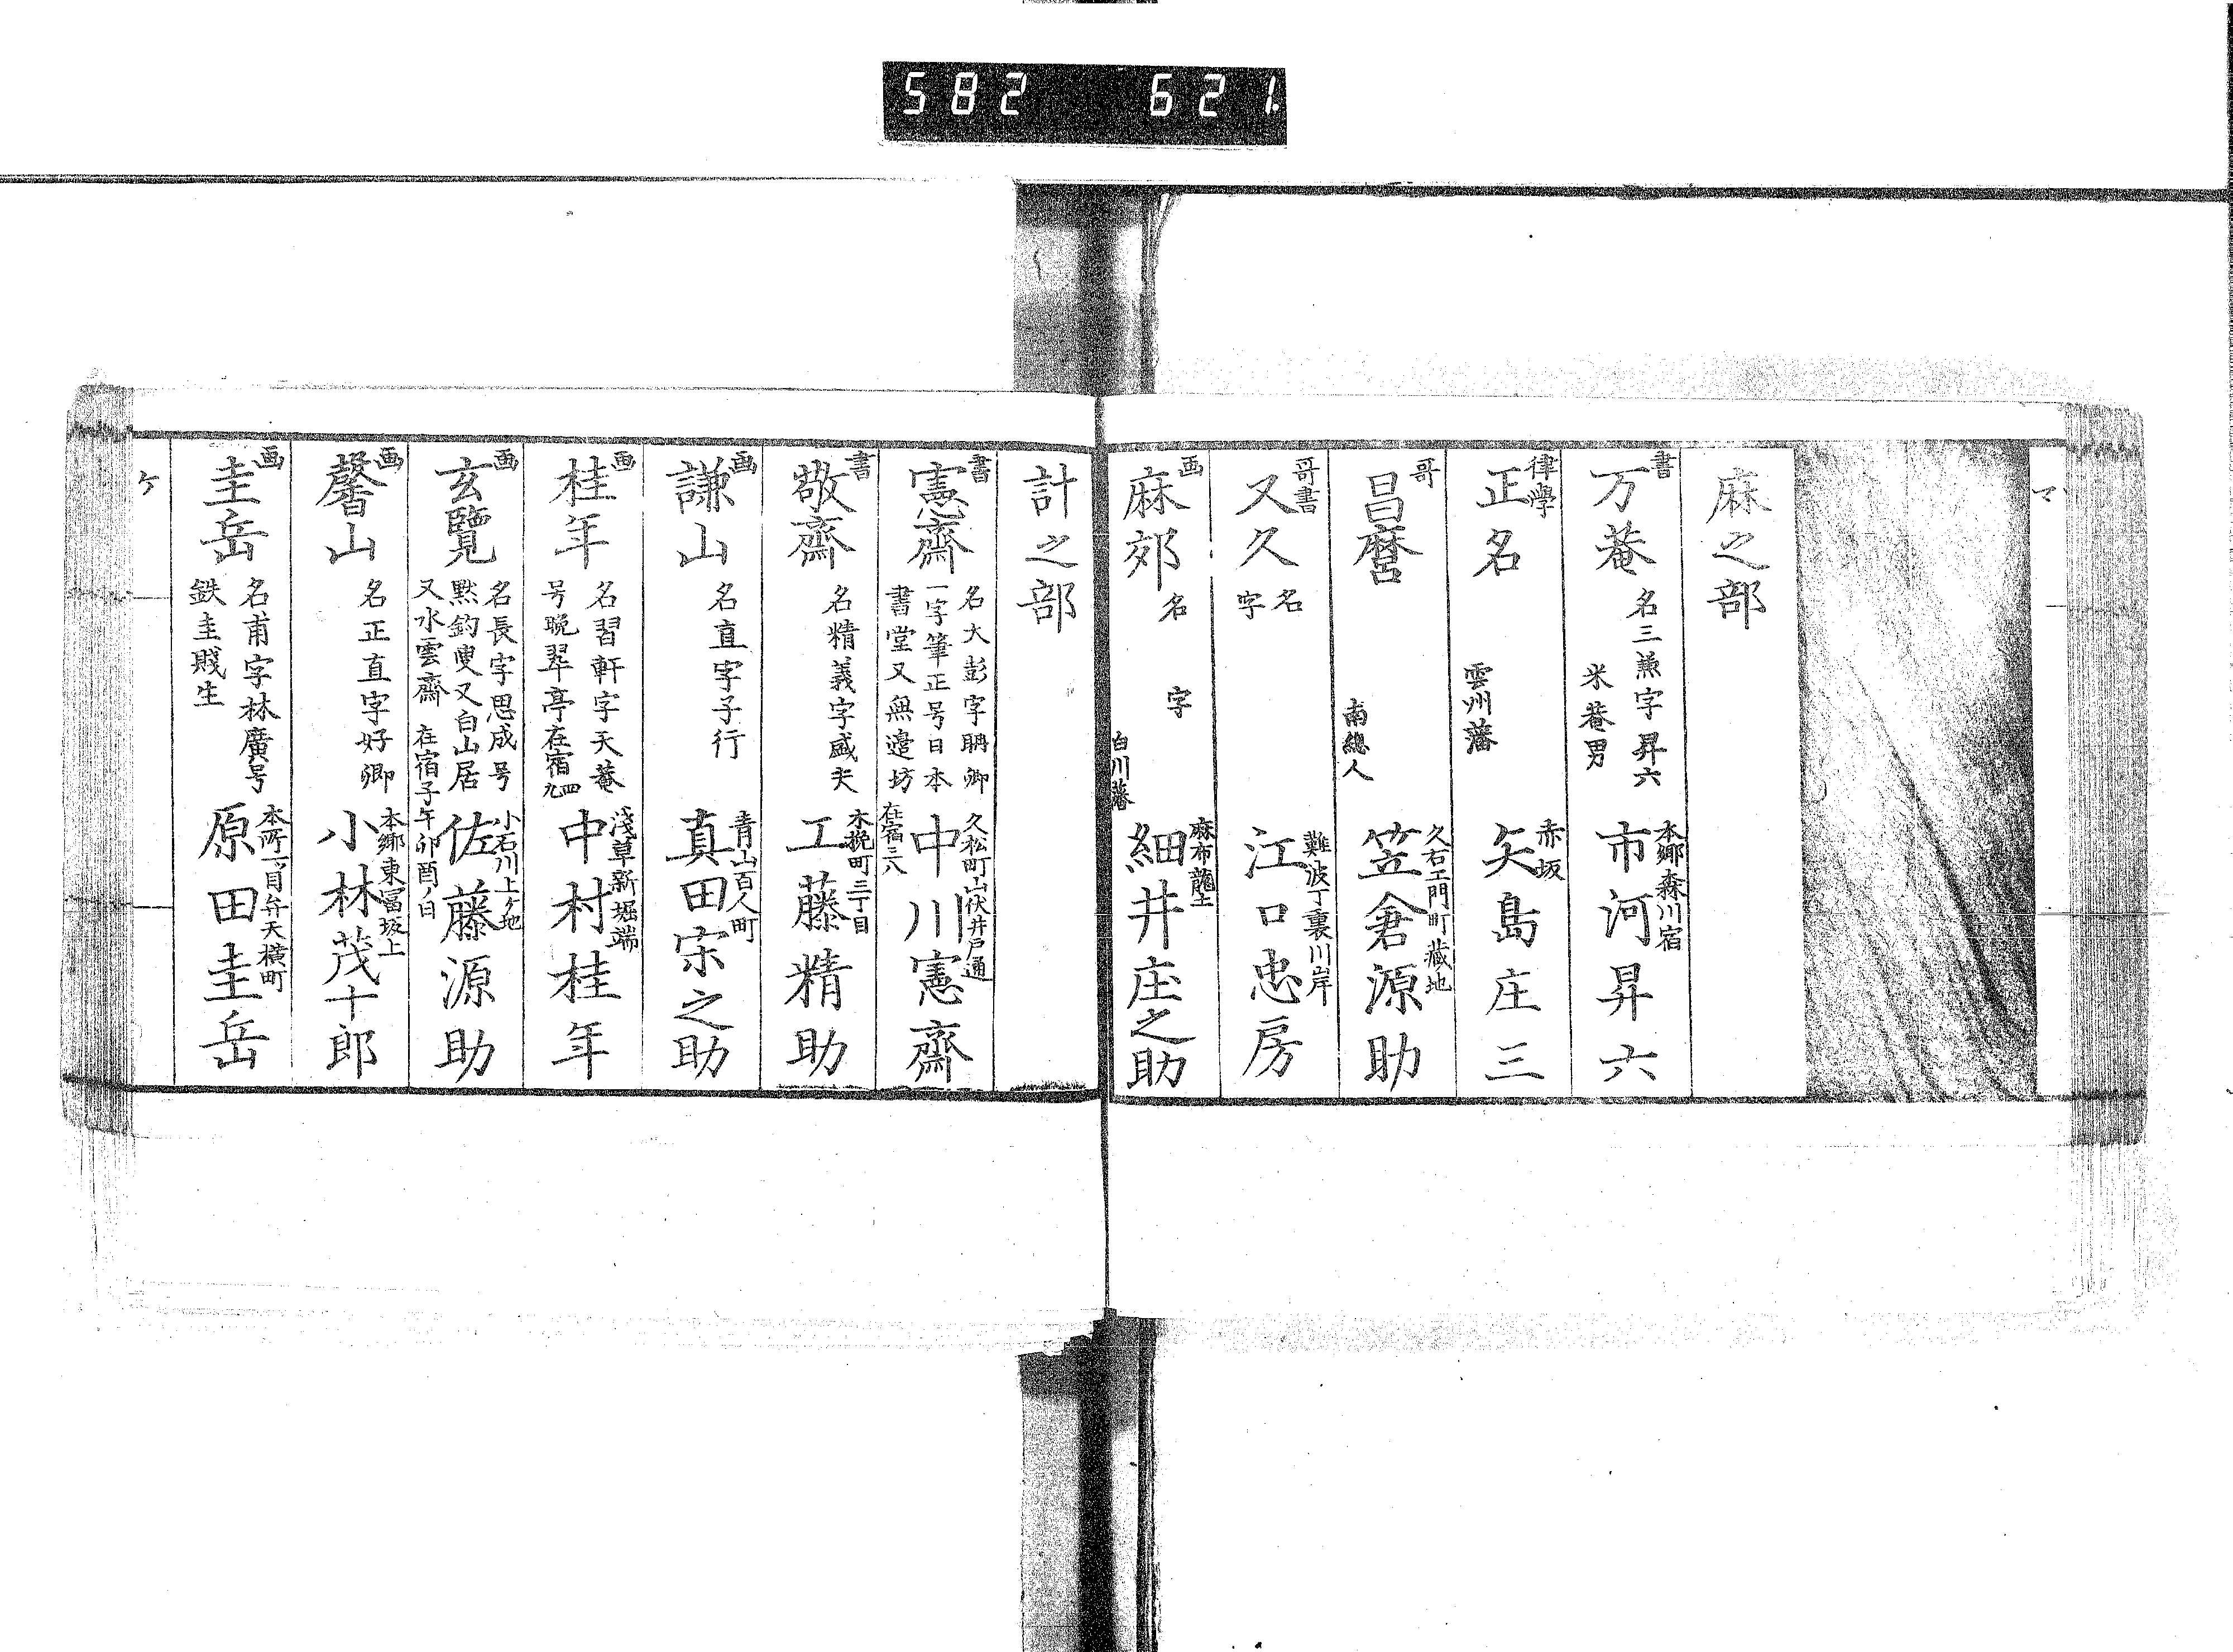 582 621
マ
麻之部
書 万菴 名三兼字昇六 米菴男 本郷森川宿 市河昇六
律學 正名 雲州藩 赤坂 矢島庄三
哥 昌麿 南總人 久右エ門町蔵地 笠倉源助
哥書 又久 名 字 難波丁裏川岸 江口忠房
画 麻郊 名 字 白川藩 麻布龍土 細井庄之助
計之部
書 憲齋 名大彭字聃卿
一字筆正号日本
書堂又無邉坊 在宿三八 久松町山伏井戸通 中川憲齋
書 敬齋 名精義字盛夫 木挽町三丁目 工藤精助
画 謙山 名直字子行 青山百人町 真田宗之助
画 桂年 名習軒字天菴
号晩翠亭在宿四九 淺草新堀端 中村桂年
画 玄覽 名長字思成号
黙釣叟又白山居
又水雲齋 在宿子午卯酉ノ日 小石川上ケ地 佐藤源助
画 馨山 名正直字好卿 本郷東冨坂上 小林茂十郎
画 圭岳 名甫字林廣号
鉄圭賤生 本所一ツ目弁天横町 原田圭岳
ケ